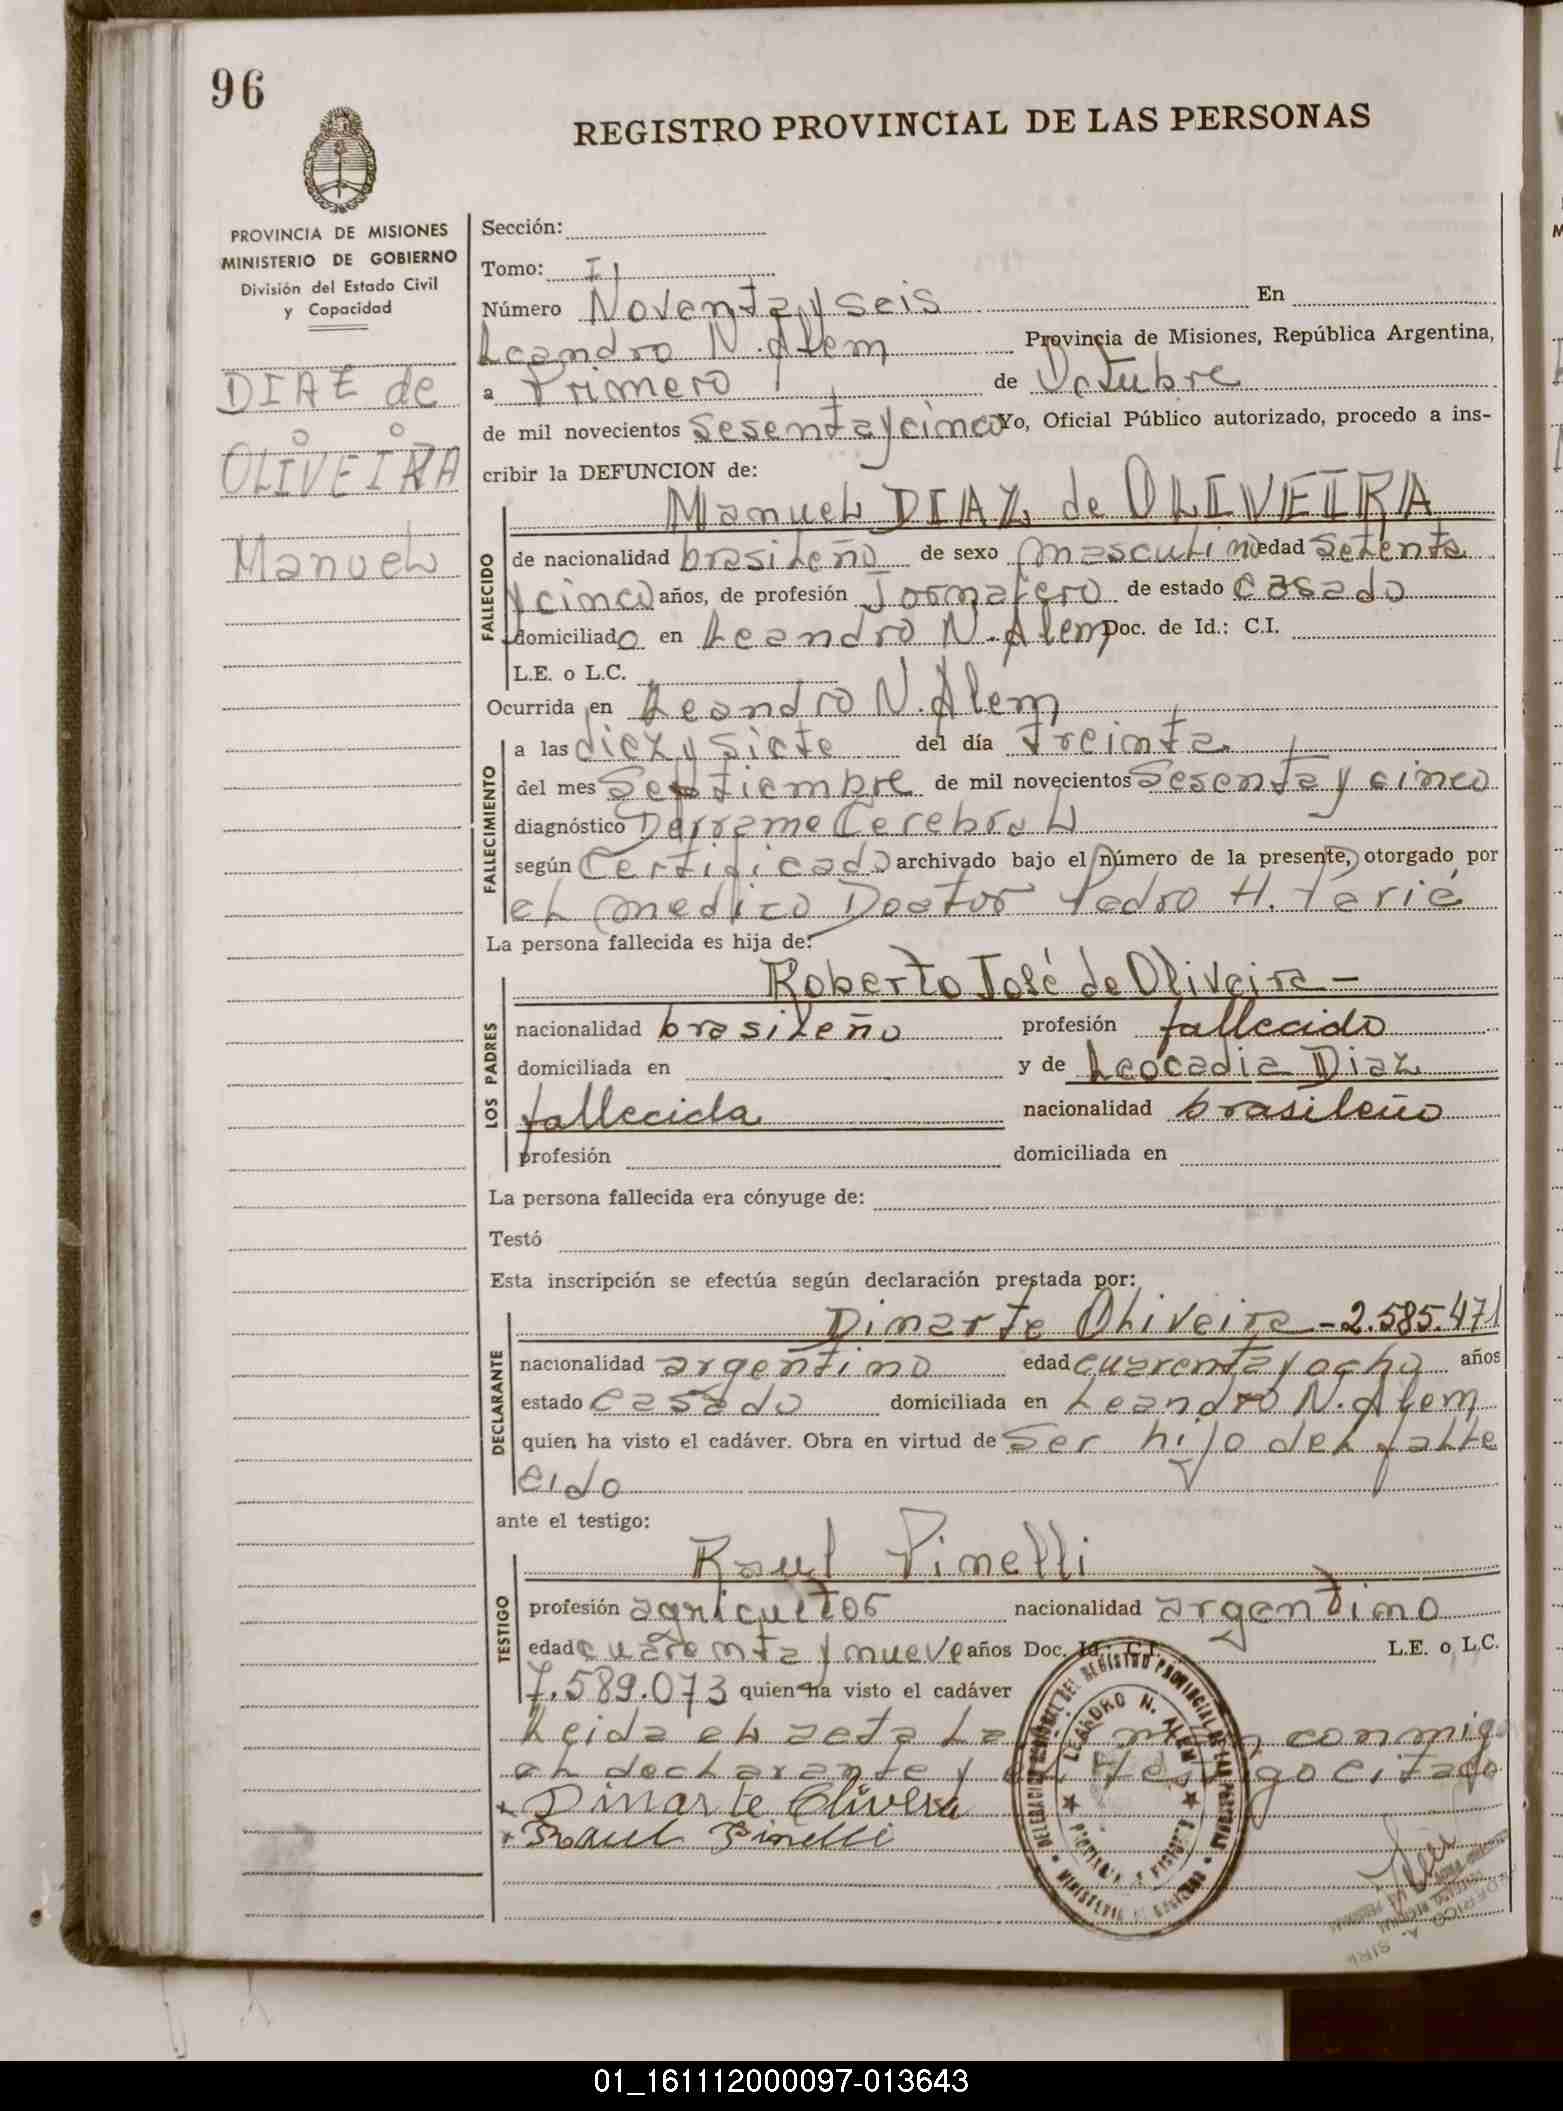 96
REGISTRO PROVINCIAL DE LAS PERSONAS
PROVINCIA DE MISIONES
MINISTERIO DE GOBIERNO
División del Estado Civil
y Capacidad
DIAZ de
OLIVEIRA
Manuel
Sección:
Tomo: I
Número Noventa y seis En
Leandro N. Alem Provincia de Misiones, República Argentina,
a Primero de Octubre
de mil novecientos Sesenta y cinco Yo, Oficial Público autorizado, procedo a ins-
cribir la DEFUNCION de:
Manuel DIAZ de OLIVEIRA
FALLECIDO
de nacionalidad brasileño de sexo masculino edad Setenta
y cinco años, de profesión Jornalero de estado casado
domiciliado en Leandro N. Alem Doc. de Id.: C.I.
L.E. o L.C.
Ocurrida en Leandro N. Alem
FALLECIMIENTO
a las diez y siete del día treinta
del mes Septiembre de mil novecientos Sesenta y cinco
diagnóstico Derrame Cerebral
según Certificado archivado bajo el número de la presente, otorgado por
el medico Doctor Pedro H.
La persona fallecida es hija de:
LOS PADRES
Roberto José de Oliveira -
nacionalidad brasileño profesión fallecido
domiciliada en y de Leocadia Diaz
fallecida nacionalidad brasileño
profesión domiciliada en
La persona fallecida era cónyuge de:
Testó
Esta inscripción se efectúa según declaración prestada por:
DECLARANTE
Dinarte Oliveira - 2.585.471
nacionalidad argentino edad cuarenta y ocho años
estado casado domiciliada en Leandro N. Alem
quien ha visto el cadáver. Obra en virtud de Ser hijo del falle
cido
ante el testigo:
TESTIGO
Raul Pinelli
profesión agricultor nacionalidad argentino
edad cuarenta y nueve años Doc. Id.: C.I. L.E. o L.C.
7.589.073 quien ha visto el cadáver
Leida el acta la conmigo
el declarante y el testigo citado
Dinarte Olivera
Raul Pinelli
DELEGACION REGIONAL DEL REGISTRO PROVINCIAL DE LAS PERSONAS
LEANDRO N. ALEM
MINISTERIO DE GOBIERNO
01_161112000097-013643